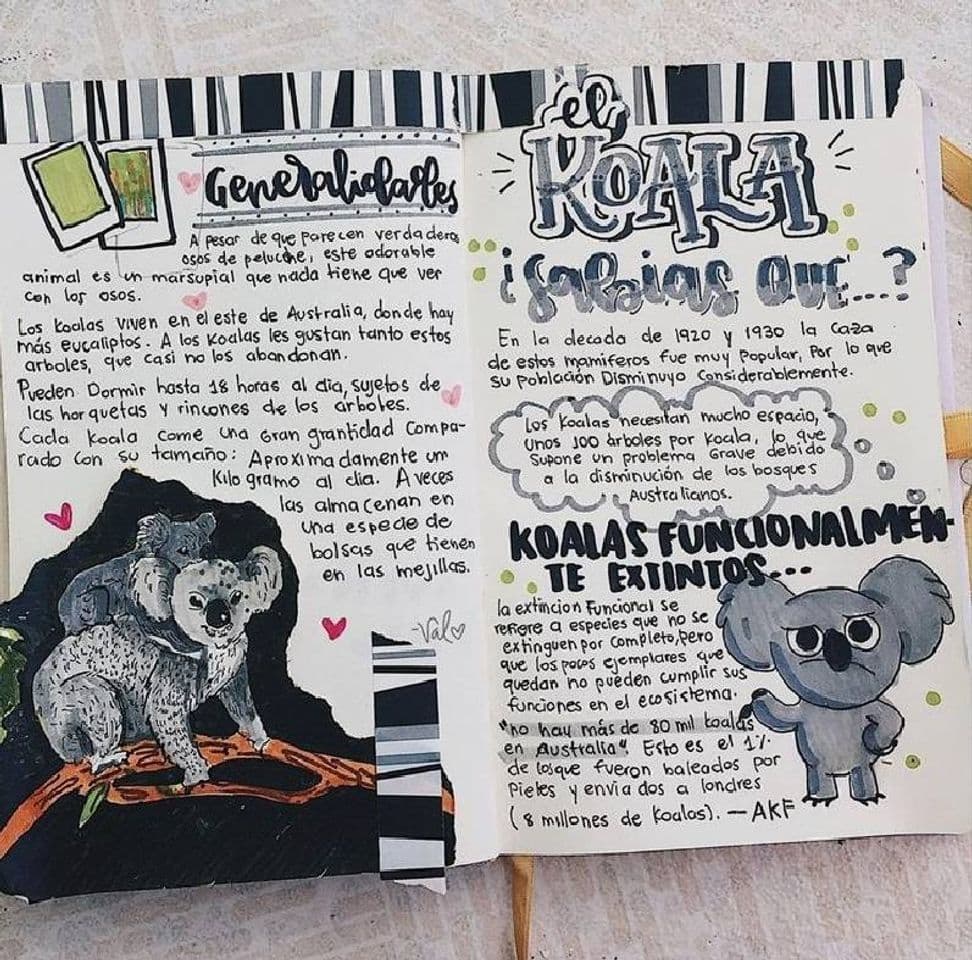 Generalidades
A pesar de que parecen verdaderos
osos de peluche, este adorable
animal es un marsupial que nada tiene que ver
con los osos.
Los koalas viven en el este de Australia, donde hay
más eucaliptos. A los koalas les gustan tanto estos
arboles, que casi no los abandonan.
Pueden Dormir hasta 18 horas al dia, sujetos de
las horquetas y rincones de los árboles.
Cada koala come una Gran grantidad compa-
rado con su tamaño: Aproximadamente un
kilogramo al dia. A veces
las almacenan en
una especie de
bolsas que tienen
en las mejillas.
-Val
el
KOALA
¿Sabias que...?
En la decada de 1920 y 1930 la caza
de estos mamiferos fue muy popular, por lo que
su población Disminuyo considerablemente.
Los koalas necesitan mucho espacio,
unos 100 árboles por koala, lo que
supone un problema Grave debido
a la disminución de los bosques
Australianos.
KOALAS FUNCIONALMEN-
TE EXTINTOS...
la extincion funcional se
refiere a especies que no se
extinguen por completo, pero
que los pocos ejemplares que
quedan no pueden cumplir sus
funciones en el ecosistema.
"no hay más de 80 mil koalas
en Australia" Esto es el 1%
de los que fueron baleados por
pieles y enviados a londres
(8 millones de koalas). — AKF